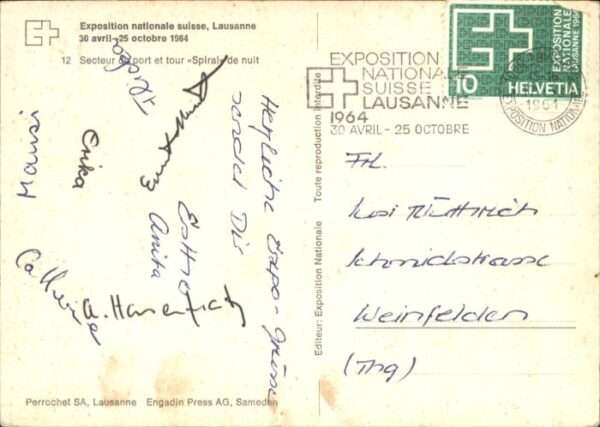 Exposition nationale suisse, Lausanne
30 avril–25 octobre 1964
12 Secteur du port et tour «Spiral» de nuit
Herzliche Expo-Grüsse
sendet Dir
Esther
Anita
Erika
Catherine
Editeur: Exposition Nationale Toute reproduction interdite
EXPOSITION
NATIONALE
SUISSE
LAUSANNE
1964
30 AVRIL - 25 OCTOBRE
EXPOSITION
NATIONALE
LAUSANNE 1964
10 HELVETIA
EXPOSITION NATIONALE
Frl.
Schmidstrasse
Weinfelden
(Thg)
Perrochet SA, Lausanne Engadin Press AG, Samedan